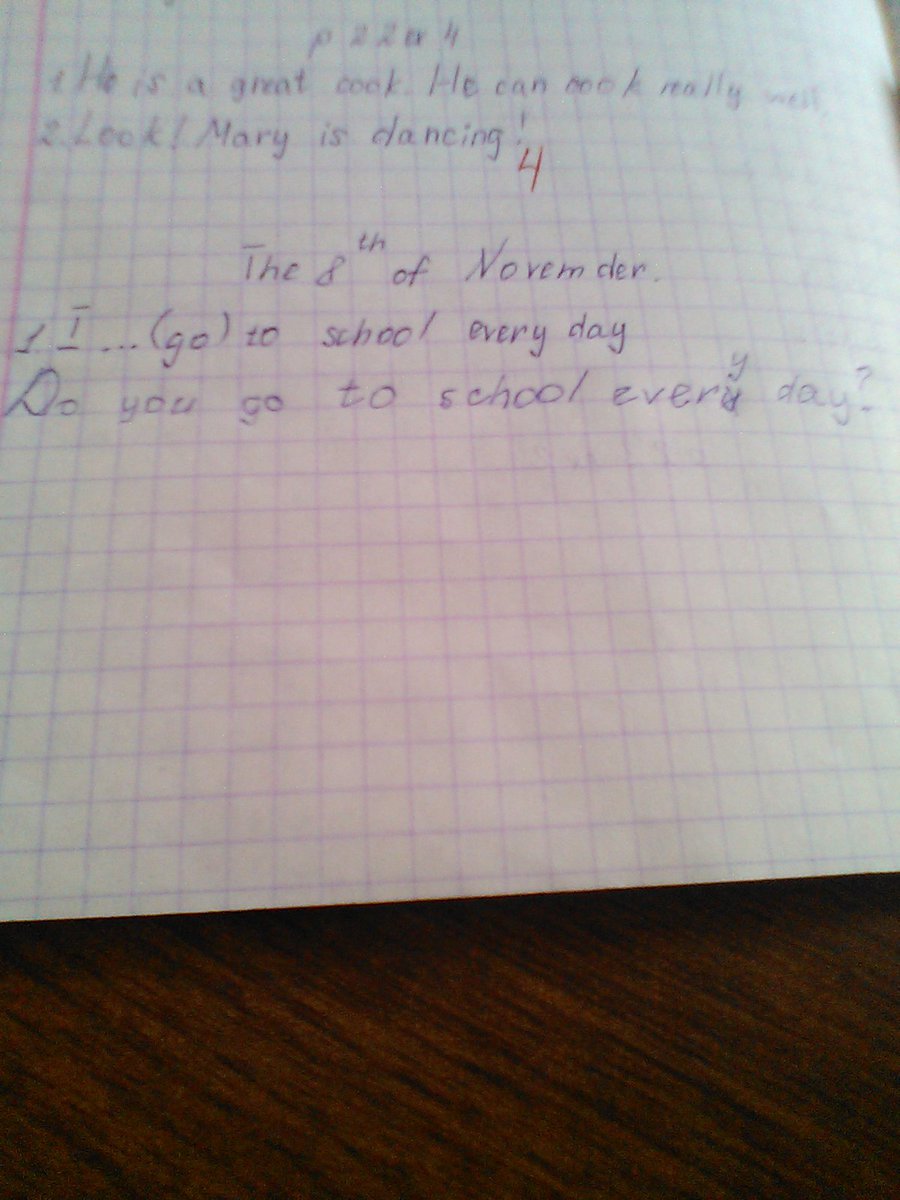 p 22 ex 4
1 He is a great cook. He can cook really well.
2. Look! Mary is dancing!
4
The 8th of Novemder.
1. I ... (go) to school every day
Do you go to school every day?